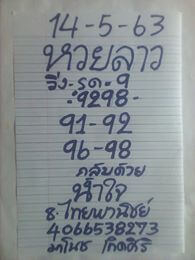 14-5-63
หวยลาว
วิ่ง-รูด-9
-9298-
91-92
96-98
กลับด้วย
น้ำใจ
ธ.ไทยพานิชย์
4066538273
มาโนช เกิดศิริ